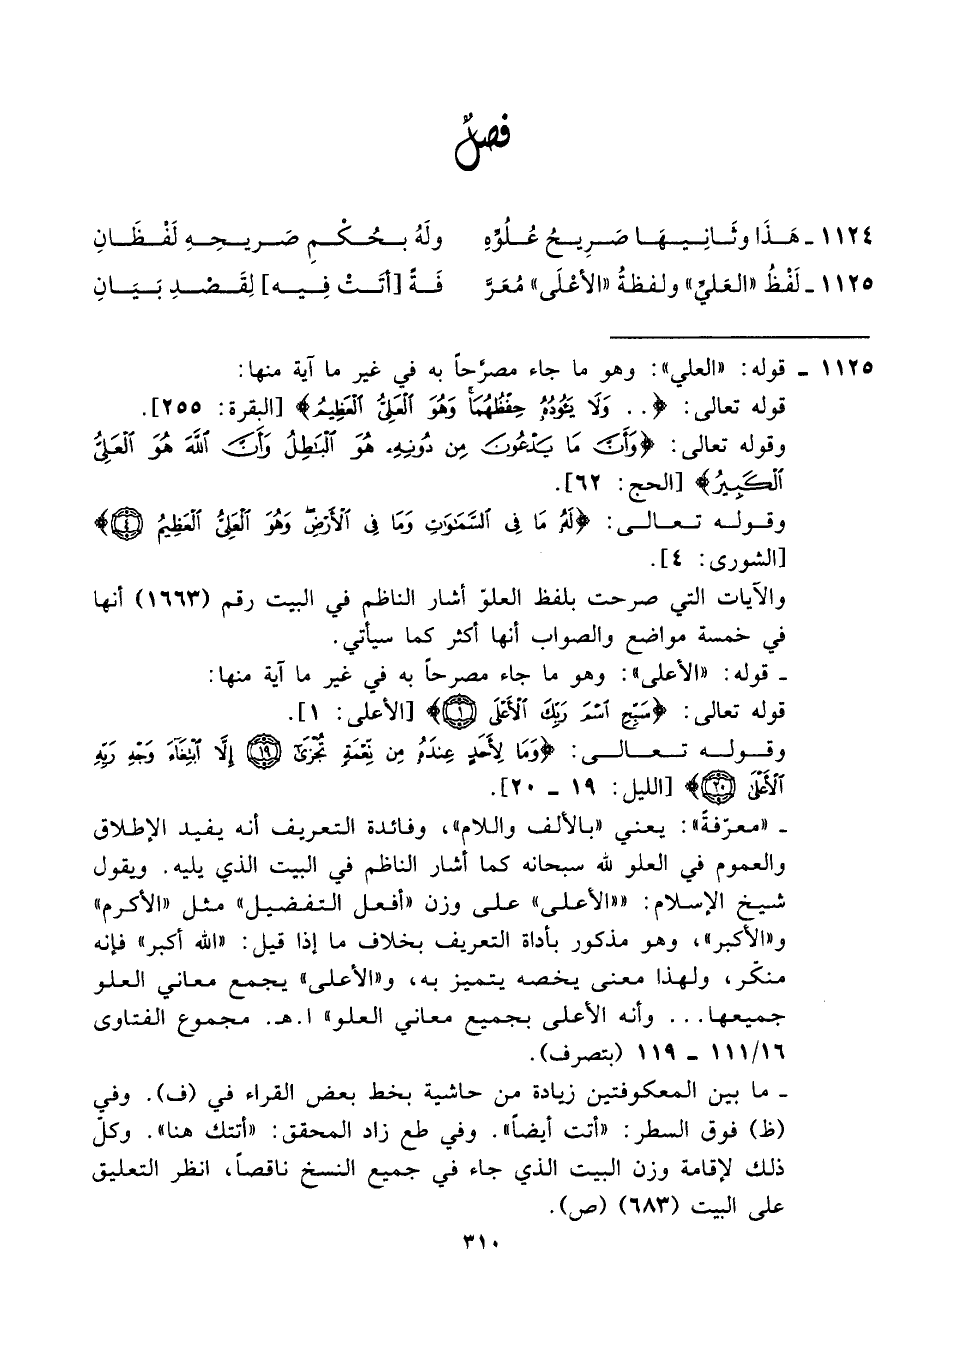 فصلٌ
١١٢٤ ـ هَـذَا وثَـانِـيـهَـا صَرِيـحُ عُـلُوِّهِ ولَهُ بـحُـكْـمِ صَـرِيـحِـهِ لَفْـظَـانِ
١١٢٥ ـ لَفْظُ «العَليِّ» ولفظةُ «الأعْلَى» مُعَرَّ فَـةً [أتَـتْ فِـيـهِ] لِقَـصْـدِ بَـيَـانِ
١١٢٥ ـ قوله: «العلي»: وهو ما جاء مصرَّحاً به في غير ما آية منها:
قوله تعالى: ﴿.. وَلَا يَـُٔودُهُۥ حِفْظُهُمَاۚ وَهُوَ ٱلْعَلِىُّ ٱلْعَظِيمُ﴾ [البقرة: ٢٥٥].
وقوله تعالى: ﴿وَأَنَّ مَا يَدْعُونَ مِن دُونِهِۦ هُوَ ٱلْبَٰطِلُ وَأَنَّ ٱللَّهَ هُوَ ٱلْعَلِىُّ
ٱلْكَبِيرُ﴾ [الحج: ٦٢].
وقـولـه تـعـالـى: ﴿لَهُۥ مَا فِى ٱلسَّمَٰوَٰتِ وَمَا فِى ٱلْأَرْضِۖ وَهُوَ ٱلْعَلِىُّ ٱلْعَظِيمُ ٤﴾
[الشورى: ٤].
والآيات التي صرحت بلفظ العلوّ أشار الناظم في البيت رقم (١٦٦٣) أنها
في خمسة مواضع والصواب أنها أكثر كما سيأتي.
ـ قوله: «الأعلى»: وهو ما جاء مصرحاً به في غير ما آية منها:
قوله تعالى: ﴿سَبِّحِ ٱسْمَ رَبِّكَ ٱلْأَعْلَى ١﴾ [الأعلى: ١].
وقـولـه تـعـالـى: ﴿وَمَا لِأَحَدٍ عِندَهُۥ مِن نِّعْمَةٍ تُجْزَىٰٓ ١٩ إِلَّا ٱبْتِغَآءَ وَجْهِ رَبِّهِ
ٱلْأَعْلَىٰ ٢٠﴾ [الليل: ١٩ ـ ٢٠].
ـ «معرّفةً»: يعني «بالألف واللام»، وفائدة التعريف أنه يفيد الإطلاق
والعموم في العلو لله سبحانه كما أشار الناظم في البيت الذي يليه. ويقول
شيخ الإسلام: ««الأعلى» على وزن «أفعل التفضيل» مثل «الأكرم»
و«الأكبر»، وهو مذكور بأداة التعريف بخلاف ما إذا قيل: «الله أكبر» فإنه
منكّر، ولهذا معنى يخصه يتميز به، و«الأعلى» يجمع معاني العلو
جميعها... وأنه الأعلى بجميع معاني العلو» ا.هـ. مجموع الفتاوى
١١١/١٦ ـ ١١٩ (بتصرف).
ـ ما بين المعكوفتين زيادة من حاشية بخط بعض القراء في (ف). وفي
(ظ) فوق السطر: «أتت أيضاً». وفي طع زاد المحقق: «أتتك هنا». وكلّ
ذلك لإقامة وزن البيت الذي جاء في جميع النسخ ناقصاً، انظر التعليق
على البيت (٦٨٣) (ص).
٣١٠